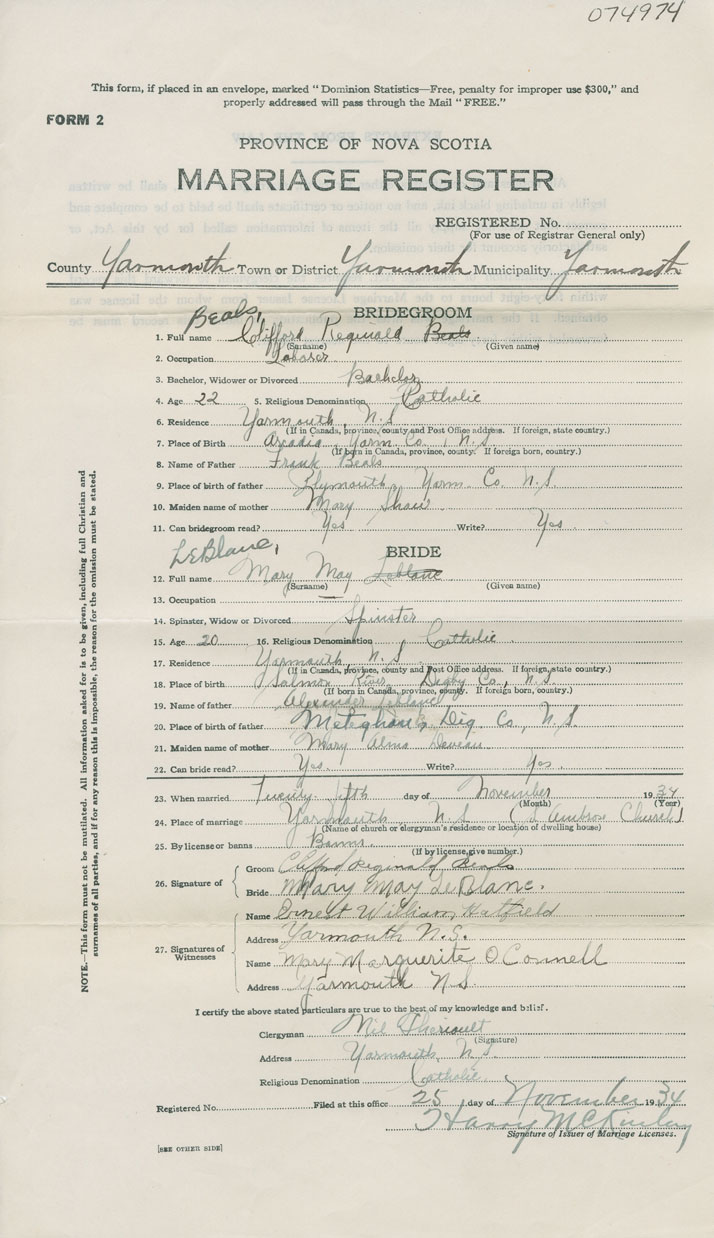 074974
This form, if placed in an envelope, marked "Dominion Statistics—Free, penalty for improper use $300," and
properly addressed will pass through the Mail "FREE."
FORM 2
PROVINCE OF NOVA SCOTIA
MARRIAGE REGISTER
REGISTERED No.
(For use of Registrar General only)
County Yarmouth Town or District Yarmouth Municipality Yarmouth
BRIDEGROOM
Beals,
1. Full name Clifford Reginald Beals
(Surname) (Given name)
2. Occupation Laborer
3. Bachelor, Widower or Divorced Bachelor
4. Age 22 5. Religious Denomination Catholic
6. Residence Yarmouth N.S
(If in Canada, province, county and Post Office address. If foreign, state country.)
7. Place of Birth Arcadia Yarm Co., N.S
(If born in Canada, province, county. If foreign born, country.)
8. Name of Father Frank Beals
9. Place of birth of father Plymouth, Yarm Co. N.S
10. Maiden name of mother Mary Shaw
11. Can bridegroom read? Yes Write? Yes
BRIDE
LeBlanc,
12. Full name Mary May Leblanc
(Surname) (Given name)
13. Occupation —
14. Spinster, Widow or Divorced Spinster
15. Age 20 16. Religious Denomination Catholic
17. Residence Yarmouth, N.S
(If in Canada, province, county and Post Office address. If foreign, state country.)
18. Place of birth Salmon River Digby Co., N.S
(If born in Canada, province, county. If foreign born, country.)
19. Name of father Alexander Leblanc
20. Place of birth of father Meteghan, Dig Co, N.S
21. Maiden name of mother Mary Alma Deveau
22. Can bride read? Yes Write? Yes
23. When married Twenty fifth day of November 1934
(Month) (Year)
24. Place of marriage Yarmouth N.S (St Ambrose Church)
(Name of church or clergyman's residence or location of dwelling house)
25. By license or banns Banns
(If by license, give number.)
26. Signature of
Groom Clifford Reginald Beals
Bride Mary May LeBlanc.
27. Signatures of Witnesses
Name Ernest William Hatfield
Address Yarmouth N.S.
Name Mary Marguerite O'Connell
Address Yarmouth N S
I certify the above stated particulars are true to the best of my knowledge and belief.
Clergyman Theriault
(Signature)
Address Yarmouth, N.S.
Religious Denomination Catholic
Registered No. Filed at this office 25 day of November 1934
Harry McKinlay
Signature of Issuer of Marriage Licenses.
[SEE OTHER SIDE]
NOTE.—This form must not be mutilated. All information asked for is to be given, including full Christian and
surnames of all parties, and if for any reason this is impossible, the reason for the omission must be stated.